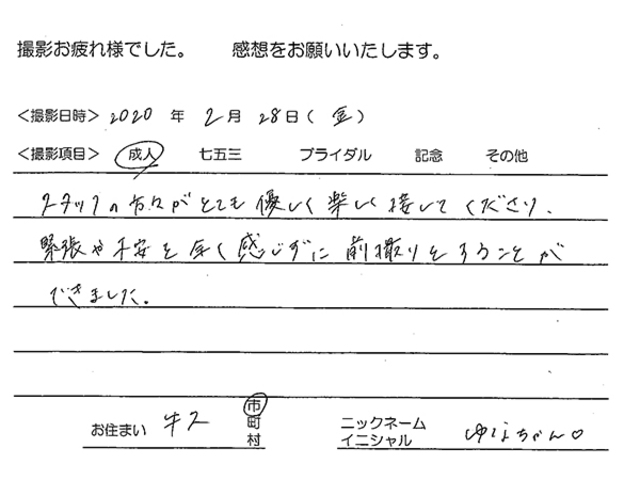 撮影お疲れ様でした。 感想をお願いいたします。
<撮影日時> 2020 年 2月 28日(金)
<撮影項目> 成人 七五三 ブライダル 記念 その他
スタッフの方々がとても優しく楽しく接してくださり、
緊張や不安を全く感じずに前撮りをすることが
できました。
お住まい 牛久 市 町 村 ニックネーム イニシャル ゆよちゃん♡